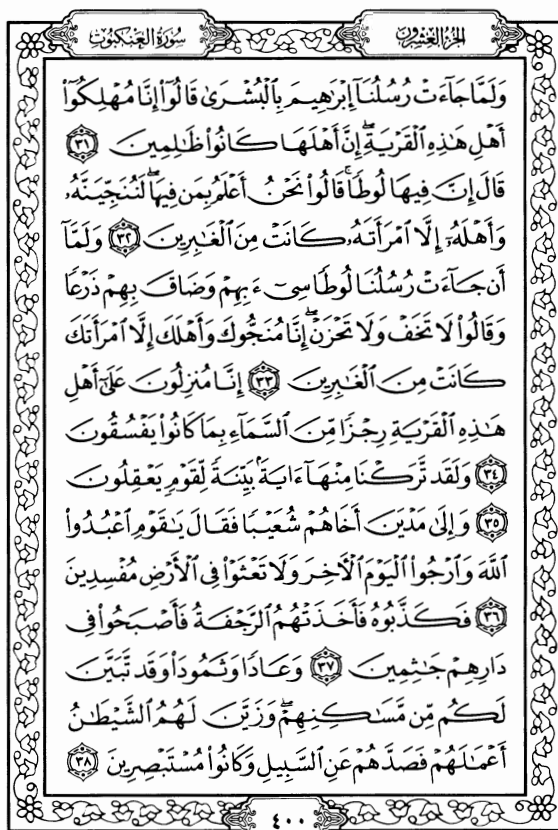 سُورَةُ العَنكَبُوتِ
الجُزْءُ العِشْرُونَ
وَلَمَّا جَاۤءَتْ رُسُلُنَاۤ إِبْرَٰهِيمَ بِٱلْبُشْرَىٰ قَالُوٓا۟ إِنَّا مُهْلِكُوٓا۟
أَهْلِ هَٰذِهِ ٱلْقَرْيَةِۖ إِنَّ أَهْلَهَا كَانُوا۟ ظَٰلِمِينَ ٣١
قَالَ إِنَّ فِيهَا لُوطًاۚ قَالُوا۟ نَحْنُ أَعْلَمُ بِمَن فِيهَاۖ لَنُنَجِّيَنَّهُۥ
وَأَهْلَهُۥٓ إِلَّا ٱمْرَأَتَهُۥ كَانَتْ مِنَ ٱلْغَٰبِرِينَ ٣٢ وَلَمَّآ
أَن جَآءَتْ رُسُلُنَا لُوطًا سِىٓءَ بِهِمْ وَضَاقَ بِهِمْ ذَرْعًا
وَقَالُوا۟ لَا تَخَفْ وَلَا تَحْزَنْۖ إِنَّا مُنَجُّوكَ وَأَهْلَكَ إِلَّا ٱمْرَأَتَكَ
كَانَتْ مِنَ ٱلْغَٰبِرِينَ ٣٣ إِنَّا مُنزِلُونَ عَلَىٰٓ أَهْلِ
هَٰذِهِ ٱلْقَرْيَةِ رِجْزًا مِّنَ ٱلسَّمَآءِ بِمَا كَانُوا۟ يَفْسُقُونَ
٣٤ وَلَقَد تَّرَكْنَا مِنْهَآ ءَايَةًۢ بَيِّنَةً لِّقَوْمٍ يَعْقِلُونَ
٣٥ وَإِلَىٰ مَدْيَنَ أَخَاهُمْ شُعَيْبًا فَقَالَ يَٰقَوْمِ ٱعْبُدُوا۟
ٱللَّهَ وَٱرْجُوا۟ ٱلْيَوْمَ ٱلْءَاخِرَ وَلَا تَعْثَوْا۟ فِى ٱلْأَرْضِ مُفْسِدِينَ
٣٦ فَكَذَّبُوهُ فَأَخَذَتْهُمُ ٱلرَّجْفَةُ فَأَصْبَحُوا۟ فِى
دَارِهِمْ جَٰثِمِينَ ٣٧ وَعَادًا وَثَمُودَا۟ وَقَد تَّبَيَّنَ
لَكُم مِّن مَّسَٰكِنِهِمْۖ وَزَيَّنَ لَهُمُ ٱلشَّيْطَٰنُ
أَعْمَٰلَهُمْ فَصَدَّهُمْ عَنِ ٱلسَّبِيلِ وَكَانُوا۟ مُسْتَبْصِرِينَ ٣٨
٤٠٠